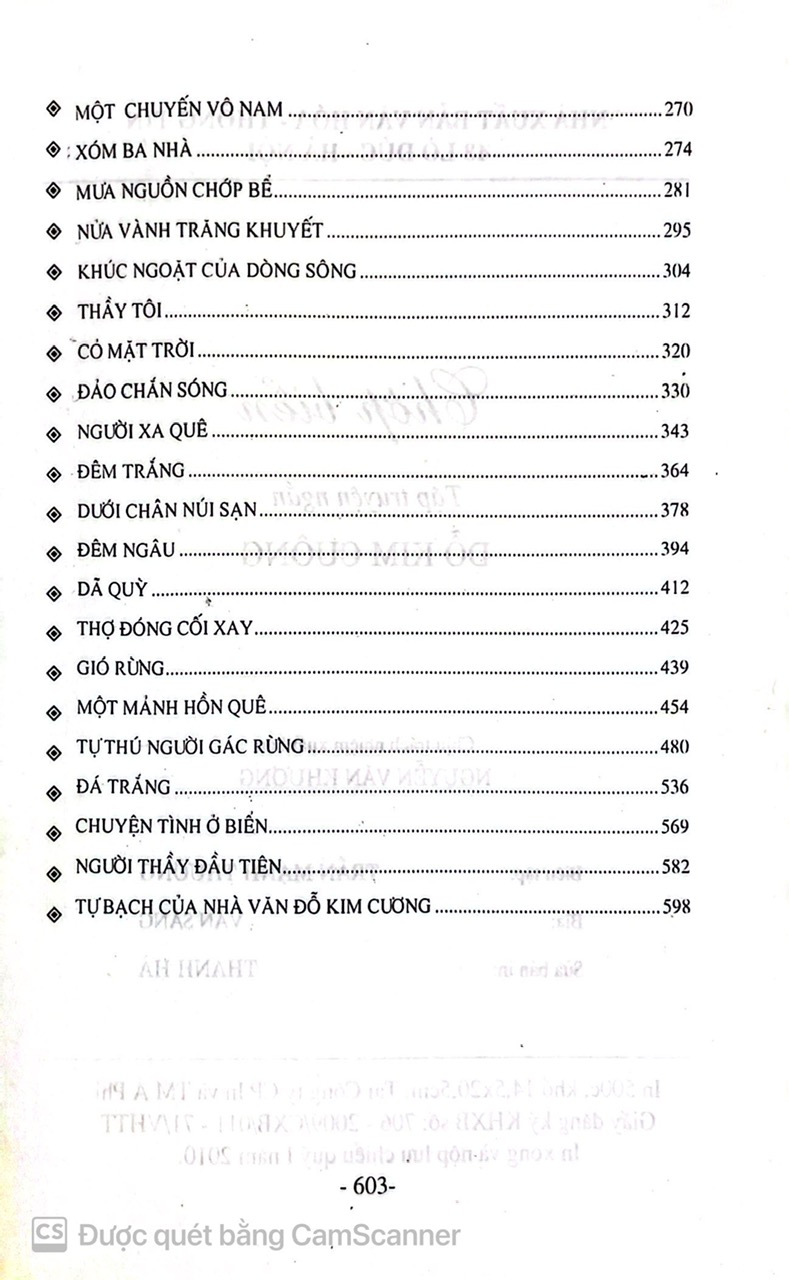 MỘT CHUYẾN VÔ NAM ... 270
XÓM BA NHÀ ... 274
MƯA NGUỒN CHỚP BỂ ... 281
NỬA VÀNH TRĂNG KHUYẾT ... 295
KHÚC NGOẶT CỦA DÒNG SÔNG ... 304
THẦY TÔI ... 312
CỎ MẶT TRỜI ... 320
ĐẢO CHẮN SÓNG ... 330
NGƯỜI XA QUÊ ... 343
ĐÊM TRẮNG ... 364
DƯỚI CHÂN NÚI SẠN ... 378
ĐÊM NGÂU ... 394
DÃ QUỲ ... 412
THỢ ĐÓNG CỐI XAY ... 425
GIÓ RỪNG ... 439
MỘT MẢNH HỒN QUÊ ... 454
TỰ THÚ NGƯỜI GÁC RỪNG ... 480
ĐÁ TRẮNG ... 536
CHUYỆN TÌNH Ở BIỂN ... 569
NGƯỜI THẦY ĐẦU TIÊN ... 582
TỰ BẠCH CỦA NHÀ VĂN ĐỖ KIM CƯƠNG ... 598
- 603-
CS Được quét bằng CamScanner